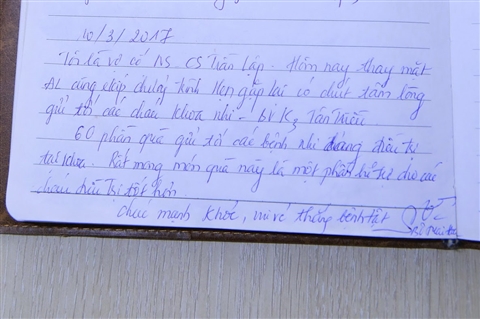 10/3/2017
Tôi là vợ cố NS. CS Trần Lập. Hôm nay thay mặt
AL cùng ekip chương trình Hẹn gặp lại có chút tấm lòng
gửi tới các cháu khoa nhi - BV K3 Tân Triều.
60 phần quà gửi tới các bệnh nhi đang điều trị
tại khoa. Rất mong món quà này là một phần hỗ trợ cho các
cháu điều trị tốt hơn
Chúc mạnh khỏe, vui vẻ thắng bệnh tật